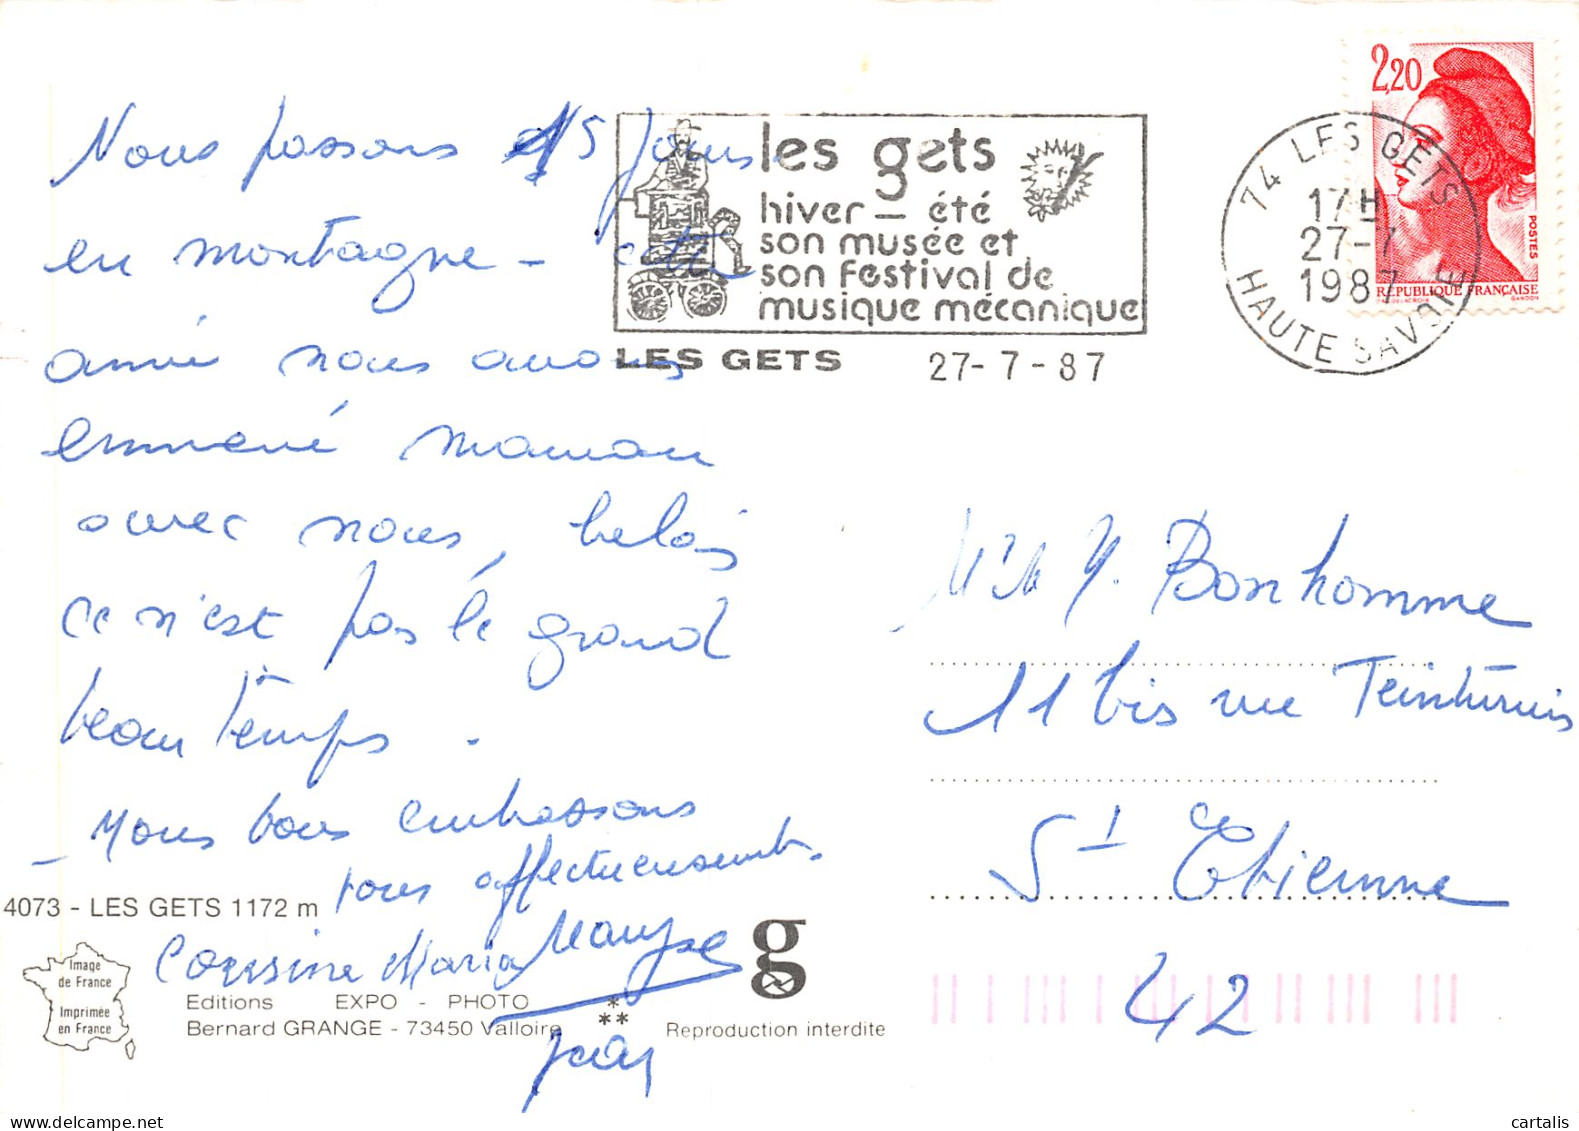 Nous passons 15 jours
en montagne - cette
année nous avons
emmené maman
avec nous, helas
ce n'est pas le grand
beau temps.
Nous vous embrassons
tous affectueusement.
Cousine Maria
les gets
hiver - été
son musée et
son festival de
musique mécanique
LES GETS 27-7-87
74 LES GETS
17H
27-7
1987
HAUTE SAVOIE
2,20
POSTES
REPUBLIQUE FRANÇAISE
GANDON
Bonhomme
11 bis rue Teinturiers
St Etienne
42
4073 - LES GETS 1172 m
Image
de France
Imprimée
en France
Editions EXPO - PHOTO
Bernard GRANGE - 73450 Valloire
*
**
Reproduction interdite
g
cartalis
www.delcampe.net